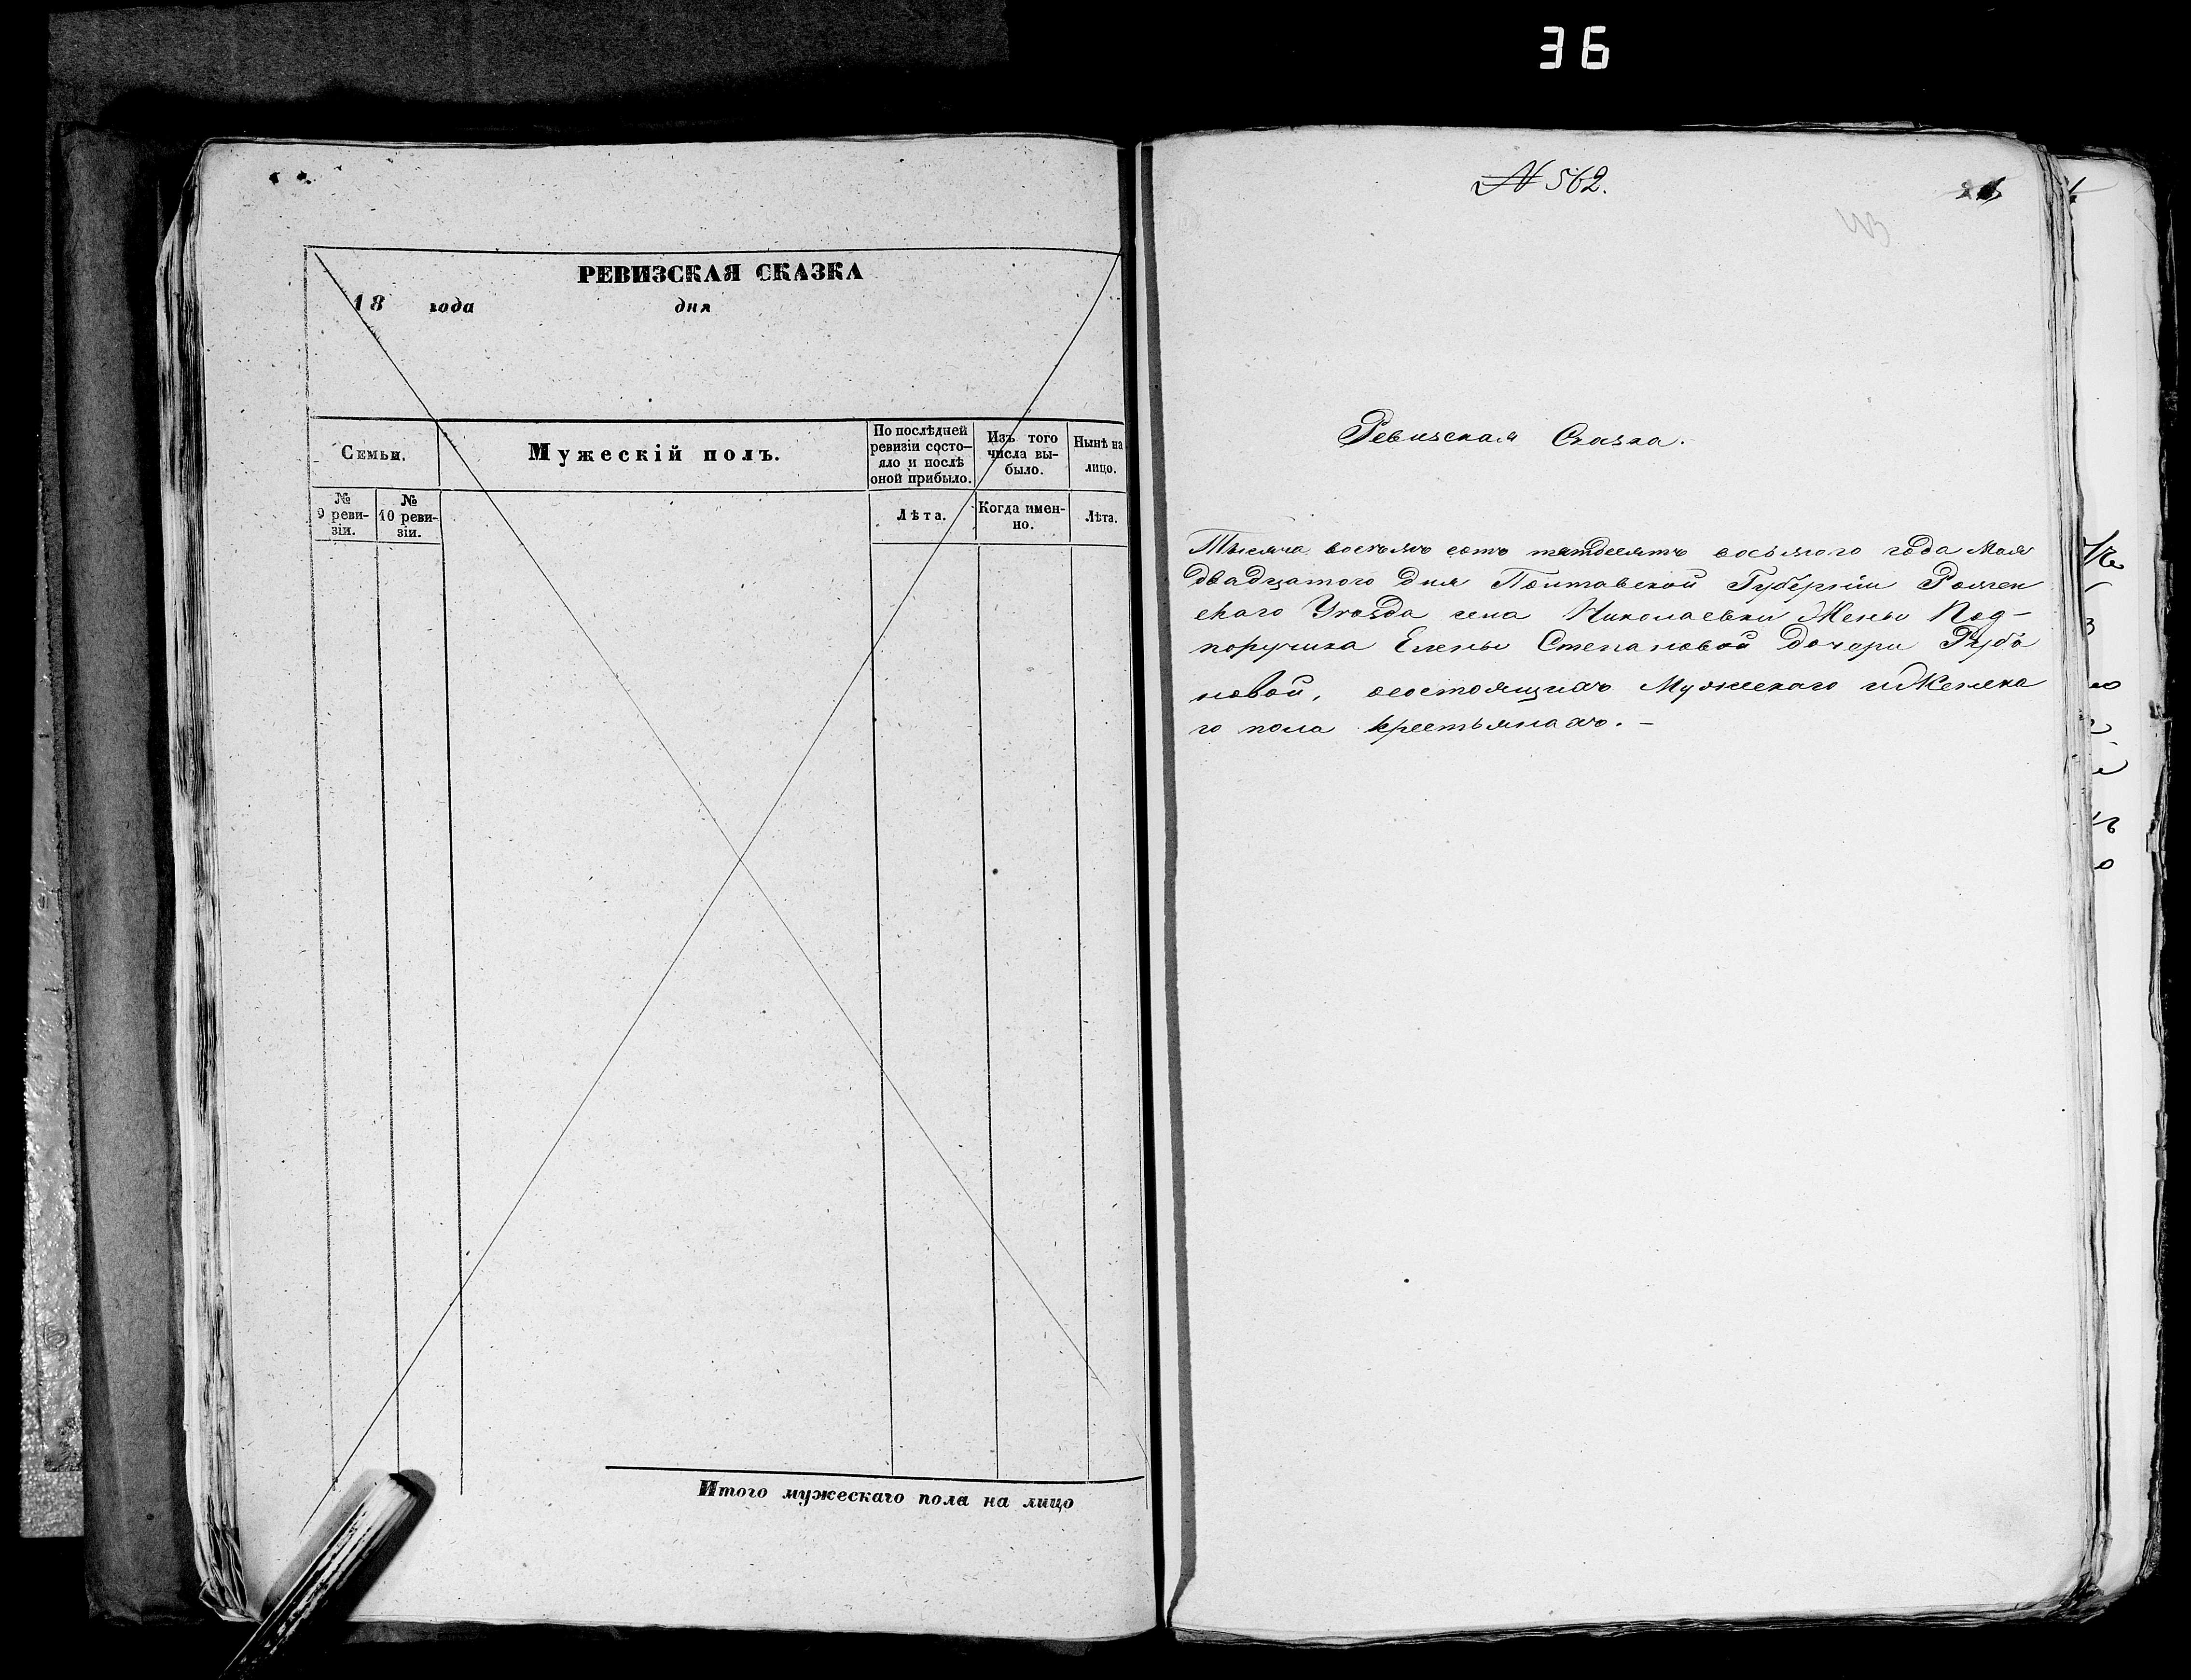 36
РЕВИЗСКАЯ СКАЗКА
18 года дня
Семьи.
Мужескій полъ.
По послѣдней ревизіи состо-
яло и послѣ оной прибыло.
Изъ того числа вы-
было.
Нынѣ на лицо.
№ 9 реви-
зіи.
№ 10 реви-
зіи.
Лѣта.
Когда имен-
но.
Лѣта.
Итого мужескаго пола на лицо
№ 562.
Ревизская Сказка.
Тысяча восемь сотъ пятдесятъ восьмого года Мая
двадцатого дня Полтавской Губерніи Ромен
скаго Уѣзда села Николаевки Жены Под-
поручика Елены Степановой дочери Руба
новой, осостоящихъ Мужескаго и Женска
го пола крестьянахъ. –